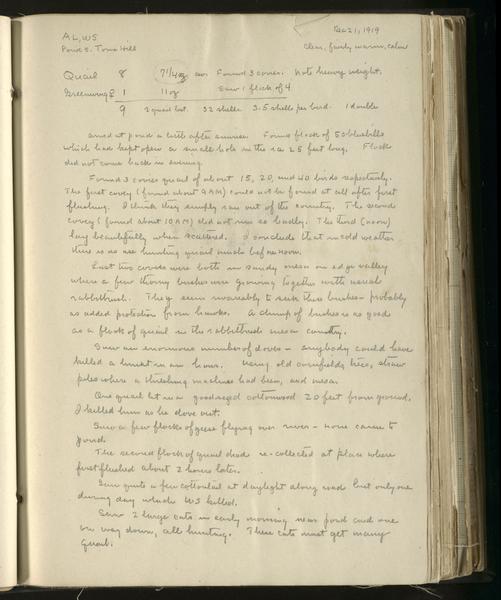 AL, WS Dec 21, 1919
Pond S. Tome Hill Clear, fairly warm, calm
Quail 8 7 1/4 oz av. Found 3 covies. Note heavy weight.
Greenwing ♀ 1 11 oz Saw 1 flock of 4
9 2 quail lost. 32 shells 3.5 shells per bird. 1 double
Arrived at pond a little after sunrise. Found flock of 50 bluebills
which had kept open a small hole in the ice 25 feet long. Flock
did not come back in evening.
Found 3 covies quail of about 15, 20, and 40 birds respectively.
The first covey (found about 9 AM) could not be found at all after first
flushing. I think they simply ran out of the country. The second
covey (found about 10 AM) did not run so badly. The third (noon)
lay beautifully when scattered. I conclude that in cold weather
there is no use hunting quail much before noon.
Last two covies were both in sandy mesa on edge valley
where a few thorny bushes were growing together with usual
rabbitbrush. They seem invariably to seek these bushes - probably
as added protection from hawks. A clump of bushes is as good
as a flock of quail in the rabbitbrush mesa country.
Saw an enormous number of doves - anybody could have
killed a limit in an hour. Using old cornfields, trees, straw
piles where a threshing machine had been, and mesa.
One quail lit in a good sized cottonwood 20 feet from ground.
I killed him as he dove out.
Saw a few flocks of geese flying over river - none came to
pond.
The second flock of quail had re-collected at place where
first flushed about 2 hours later.
Saw quite a few cottontail at daylight along road but only one
during day which WS killed.
Saw 2 large cats in early morning near pond and one
on way down, all hunting. These cats must get many
quail.